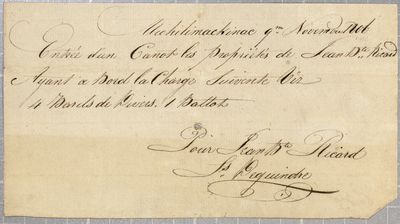 Michilimackinac 9me Novembre 1806
Entrée d'un Canot les Propriétés de Jean Bte Ricard
Ayant a Bord la Charge Suivente Viz
4 Barils de Divers, 1 Ballot
Pour Jean Bte Ricard
Ls Dequindre